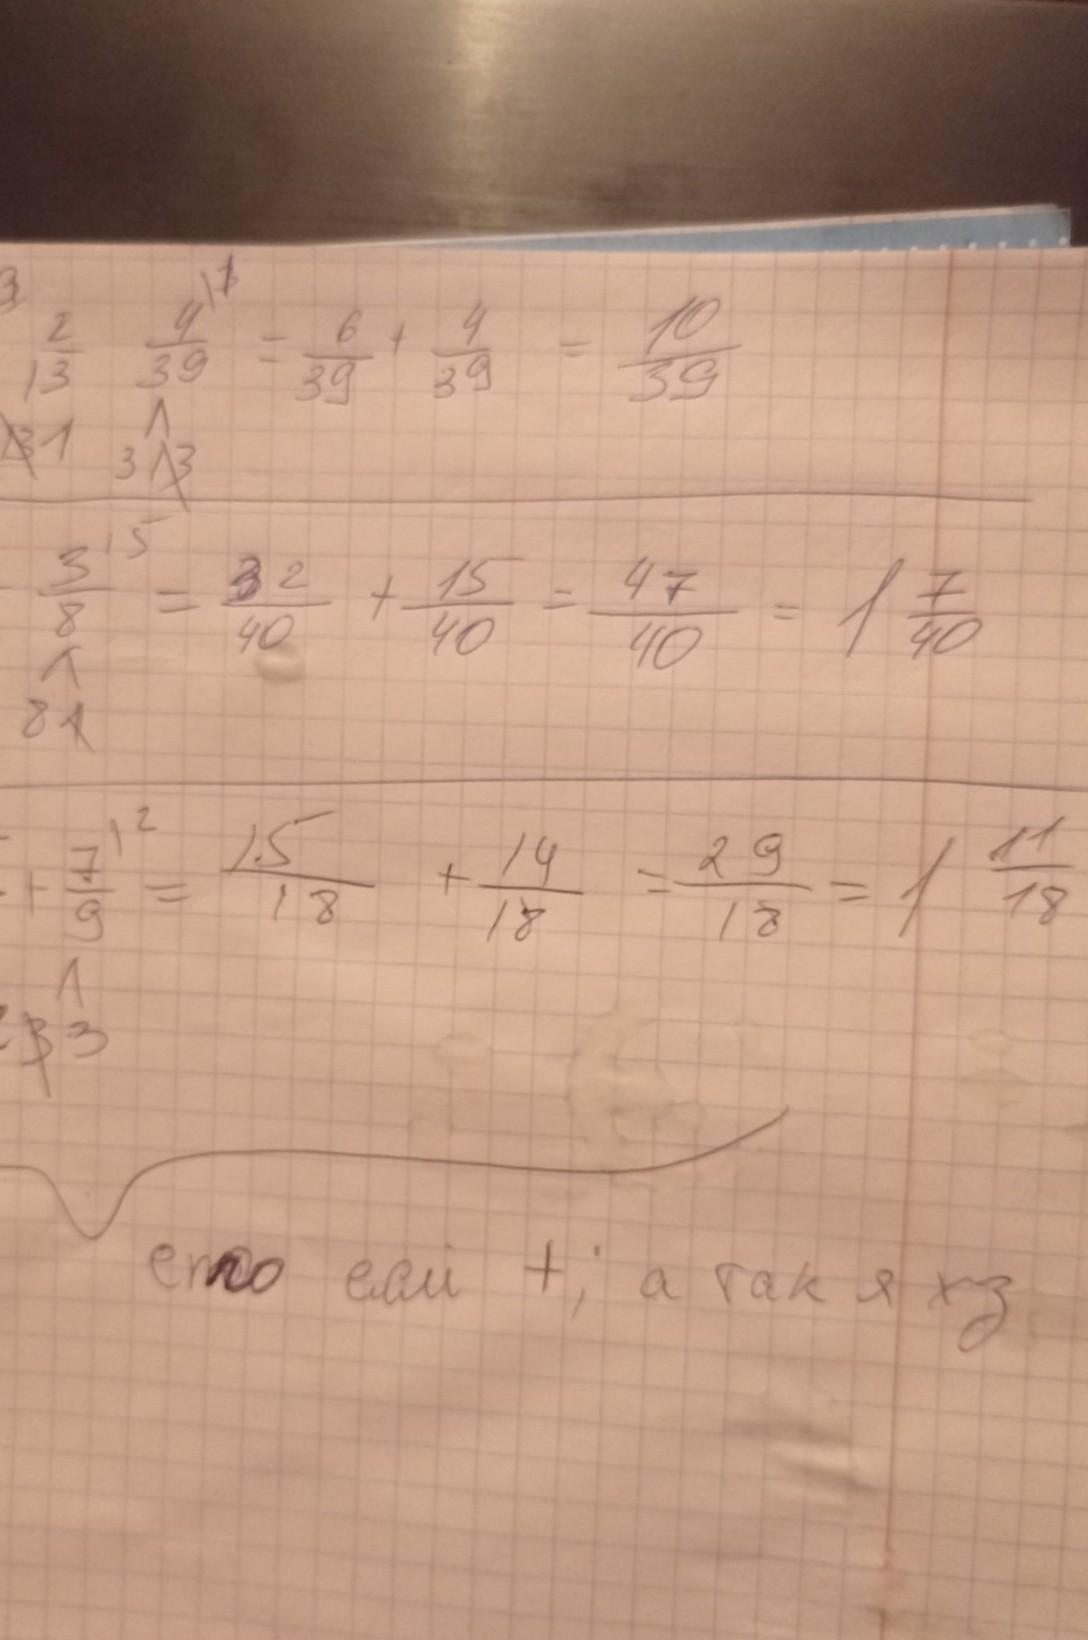 3 \1
2/13 4/39 = 6/39 + 4/39 = 10/39
13 1 3 13
3/8 \5 = 32/40 + 15/40 = 47/40 = 1 7/40
8 1
+ 7/9 \2 = 15/18 + 14/18 = 29/18 = 1 11/18
3 3
если +; а так я хз